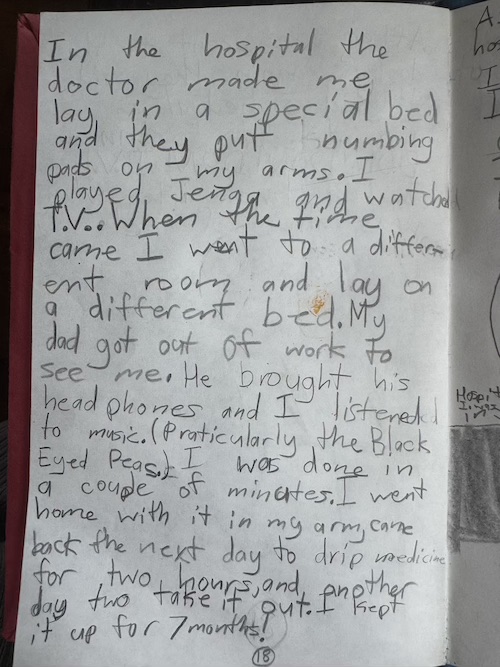 In the hospital the
doctor made me
lay in a special bed
and they put numbing
pads on my arms. I
played Jenga and watched
T.V.. When the time
came I went to a differ-
ent room and lay on
a different bed. My
dad got out of work to
see me. He brought his
headphones and I listened
to music. (Praticularly the Black
Eyed Peas.) I was done in
a couple of minutes. I went
home with it in my arm, came
back the next day to drip medicine
for two hours, and another
day two take it out. I kept
it up for 7 months!
18